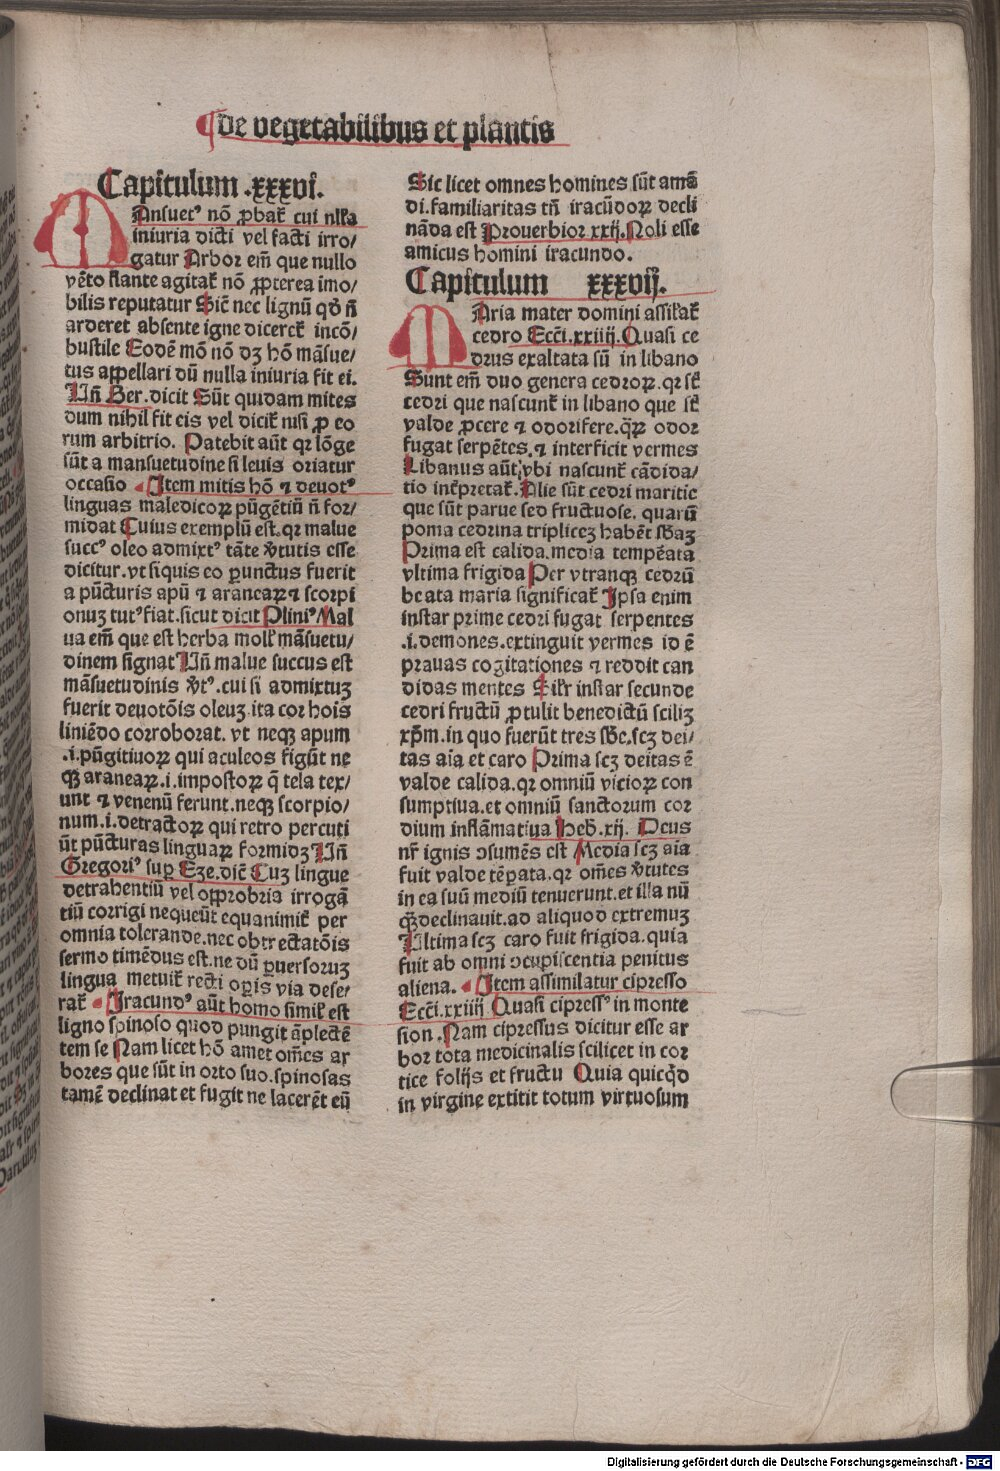 de vegetabilibus et plantis
Capitulum .xxxvi.
MAnsuetꝰ nō ꝓbat᷑ cui nlla
iniuria dicti vel facti irro/
gatur Arbor em̄ que nullo
vēto flante agitat᷑ nō ꝓpterea imo/
bilis reputatur Sic̄ nec lignū qd̄ n̄
arderet absente igne diceret᷑ incō/
bustile Eodē mō nō dꝫ hō māsue/
tus appellari dū nulla iniuria fit ei.
Un̄ Ber.dicit Sūt quidam mites
dum nihil fit eis vel dicit᷑ nisi ꝓ eo
rum arbitrio. Patebit aūt qꝛ lōge
sūt a mansuetudine si leuis oriatur
occasio Item mitis hō ⁊ deuotꝰ
linguas maledicoꝝ pūgētiū n̄ for/
midat Cuius exemplū est.qꝛ malue
succꝰ oleo admixtꝰ tāte v̄tutis esse
dicitur.vt si quis eo ꝑunctus fuerit
a pūcturis apū ⁊ araneaꝝ ⁊ scorpi
onuꝫ tutꝰ fiat.sicut dicit Pliniꝰ Mal
ua em̄ que est herba moll᷑ māsuetu/
dinem signat Un̄ malue succus est
māsuetudinis v̄tꝰ.cui si admixtuꝫ
fuerit deuotōis oleuꝫ.ita cor hoīs
liniēdo corroborat. vt neqꝫ apum
.i.pūgitiuoꝝ qui aculeos figūt ne
qꝫ araneaꝝ.i.impostoꝝ q̄ tela tex/
unt ⁊ venenū ferunt.neqꝫ scorpio/
num.i.detractoꝝ qui retro percuti
ūt pūcturas linguaꝝ formidꝫ Un̄
Gregoriꝰ suꝑ Eze.dic̄ Cuꝫ lingue
detrahentiū vel opprobria irrogā
tiū corrigi nequeūt equanimit᷑ per
omnia tolerande.nec obtrectatōis
sermo timēdus est.ne dū ꝑuersoruꝫ
lingua metuit᷑ recti oꝑis via dese/
rat᷑ Iracundꝰ aūt homo simil᷑ est
ligno spinoso quod pungit āplectē
tem se Nam licet hō amet om̄es ar
bores que sūt in orto suo.spinosas
tamē declinat et fugit ne lacerēt eū
Sic licet omnes homines sūt amā
di.familiaritas tn̄ iracūdoꝝ decli
nāda est Prouerbioꝝ xxij.Noli esse
amicus homini iracundo.
Capitulum xxxvij.
MAria mater domini assilat᷑
cedro Ecc̄i.xxiiij.Quasi ce
drus exaltata sū in libano
Sunt em̄ duo genera cedroꝝ.qꝛ st̄
cedri que nascunt᷑ in libano que st̄
valde ꝓcere ⁊ odorifere.quaꝝ odor
fugat serpētes.⁊ interficit vermes
Libanus aūt vbi nascunt᷑ cādida/
tio int̄pretat᷑.Alie sūt cedri maritie
que sūt parue sed fructuose. quarū
poma cedrina triplicez habēt sb̄aꝫ
Prima est calida.media tempēata
vltima frigida Per vtranqꝫ cedrū
beata maria significat᷑ Ipsa enim
instar prime cedri fugat serpentes
.i.demones.extinguit vermes id ē
prauas cogitationes ⁊ reddit can
didas mentes Silr instar secunde
cedri fructū ꝓtulit benedictū sciliꝫ
xp̄m.in quo fuerūt tres sb̄e.scꝫ dei/
tas aīa et caro Prima scꝫ deitas ē
valde calida.qꝛ omniū vicioꝝ con
sumptiua.et omniū sanctorum cor
dium inflāmatiua Heb̄.xij. Deus
nr̄ ignis ↄsumēs est Media scꝫ aīa
fuit valde tēꝑata.qꝛ om̄es v̄tutes
in ea suū mediū tenuerunt.et illa nū
qꝫ declinauit.ad aliquod extremuꝫ
Ultima scꝫ caro fuit frigida.quia
fuit ab omni ↄcupiscentia penitus
aliena. Item assimilatur cipresso
Ecc̄i.xxiiij Quasi cipressꝰ in monte
sion.Nam cipressus dicitur esse ar
bor tota medicinalis scilicet in cor
tice folijs et fructu Quia quicqd̄
in virgine extitit totum virtuosum
Digitalisierung gefördert durch die Deutsche Forschungsgemeinschaft - DFG